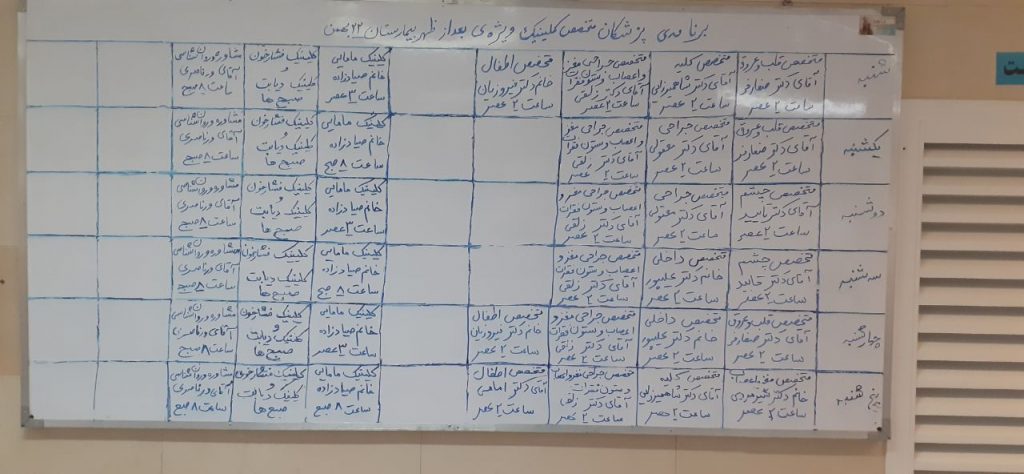 برنامه‌ی پزشکان متخصص کلینیک ویژه‌ی بعداز ظهر بیمارستان ۲۲ بهمن
شنبه
متخصص قلب و عروق
آقای دکتر صفارفر
ساعت ۲ عصر
متخصص کلیه
آقای دکتر شاهمیرزلی
ساعت ۲ عصر
متخصص جراحی مغز
و اعصاب و ستون فقرات
آقای دکتر زلقی
ساعت ۲ عصر
متخصص اطفال
خانم دکتر فیروزیان
ساعت ۲ عصر
کلینیک مامایی
خانم صیادزاده
ساعت ۳ عصر
کلینیک فشارخون
و
کلینیک دیابت
صبح ها
مشاوره روانشناسی
آقای ورناصری
ساعت ۸ صبح
یکشنبه
متخصص قلب و عروق
آقای دکتر صفارفر
ساعت ۲ عصر
متخصص جراحی
آقای دکتر عقولی
ساعت ۲ عصر
متخصص جراحی مغز و
و اعصاب و ستون فقرات
آقای دکتر زلقی
ساعت ۲ عصر
کلینیک مامایی
خانم صیادزاده
ساعت ۸ صبح
کلینیک فشارخون
و
کلینیک دیابت
صبح ها
مشاوره روانشناسی
آقای ورناصری
ساعت ۸ صبح
دوشنبه
متخصص چشم
آقای دکتر
ساعت ۲ عصر
متخصص جراحی
آقای دکتر عقولی
ساعت ۲ عصر
متخصص جراحی مغز و
اعصاب و ستون فقرات
آقای دکتر زلقی
ساعت ۲ عصر
کلینیک مامایی
خانم صیادزاده
ساعت ۳ عصر
کلینیک فشارخون
و
کلینیک دیابت
صبح ها
مشاوره روانشناسی
آقای ورناصری
ساعت ۸ صبح
سه شنبه
متخصص چشم
آقای دکتر
ساعت ۲ عصر
متخصص داخلی
خانم دکتر علیپور
ساعت ۲ عصر
متخصص جراحی مغز و
اعصاب و ستون فقرات
آقای دکتر زلقی
ساعت ۲ عصر
کلینیک مامایی
خانم صیادزاده
ساعت ۸ صبح
کلینیک فشارخون
و
کلینیک دیابت
صبح ها
مشاوره روانشناسی
آقای ورناصری
ساعت ۸ صبح
چهارشنبه
متخصص قلب و عروق
آقای دکتر صفارفر
ساعت ۲ عصر
متخصص داخلی
خانم دکتر علیپور
ساعت ۲ عصر
متخصص جراحی مغز و
اعصاب و ستون فقرات
آقای دکتر زلقی
ساعت ۲ عصر
متخصص اطفال
خانم دکتر فیروزیان
ساعت ۲ عصر
کلینیک مامایی
خانم صیادزاده
ساعت ۳ عصر
کلینیک فشارخون
و
کلینیک دیابت
صبح ها
مشاوره روانشناسی
آقای ورناصری
ساعت ۸ صبح
پنج شنبه
متخصص مغز و اعصاب
خانم دکتر
ساعت ۲ عصر
متخصص کلیه
آقای دکتر شاهمیرزلی
ساعت ۲ عصر
متخصص جراحی مغز و اعصاب
و ستون فقرات
آقای دکتر زلقی
ساعت ۲ عصر
متخصص اطفال
آقای دکتر امامی
ساعت ۲ عصر
کلینیک مامایی
خانم صیادزاده
ساعت ۸ صبح
کلینیک فشارخون
و
کلینیک دیابت
صبح ها
مشاوره روانشناسی
آقای ورناصری
ساعت ۸ صبح